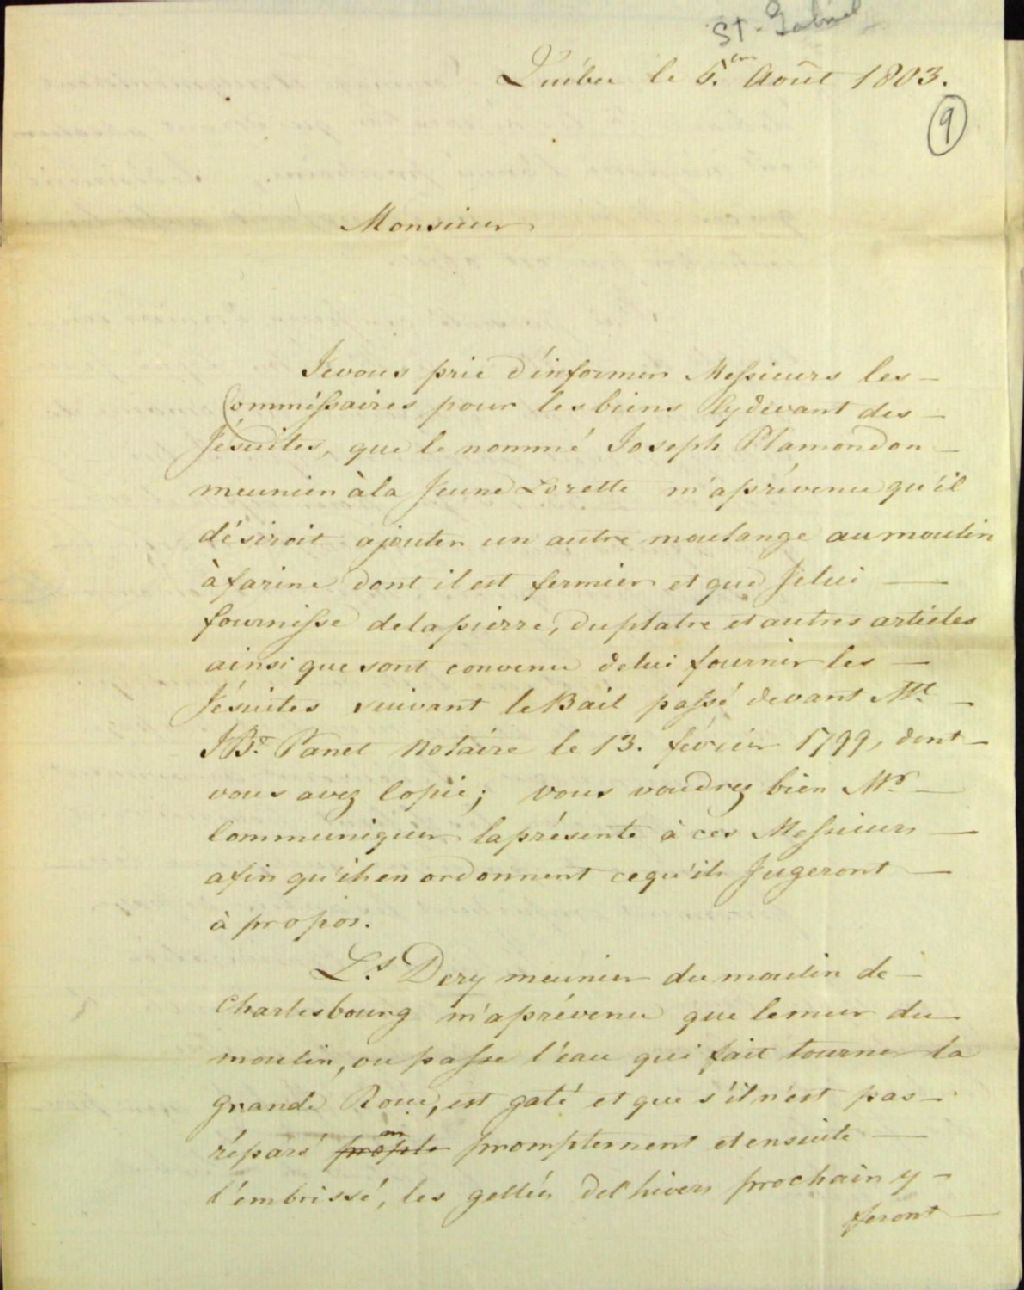 St. Gabriel
Québec le 1er Août 1803.
9
Monsieur
Je vous prie d'informer Messieurs les
Commissaires pour les biens cydevant des
Jésuites, que le nommé Joseph Plamondon
meunier à la Jeune Lorette m'a prévenu qu'il
désiroit ajouter un autre moulange au moulin
à farine dont il est fermier et que Je lui
fournisse de la pierre, du platre et autres articles
ainsi que sont convenu de lui fournir les
Jésuites suivant le Bail passé devant Me.
J.Bte. Panet Notaire le 13. février 1799, dont
vous avez Copie; vous voudrez bien Mr.
Communiquer la présente à ces Messieurs
afin qu'ils en ordonnent ce qu'ils Jugeront
à propos.
Ls. Dery meunier du moulin de
Charlesbourg m'a prévenu que le mur du
moulin, ou passe l'eau qui fait tourner la
grande Roue, est gaté et que s'il n'est pas
réparé promptement et ensuite
l'embrissé, les gellées de l'hiver prochain y
feront